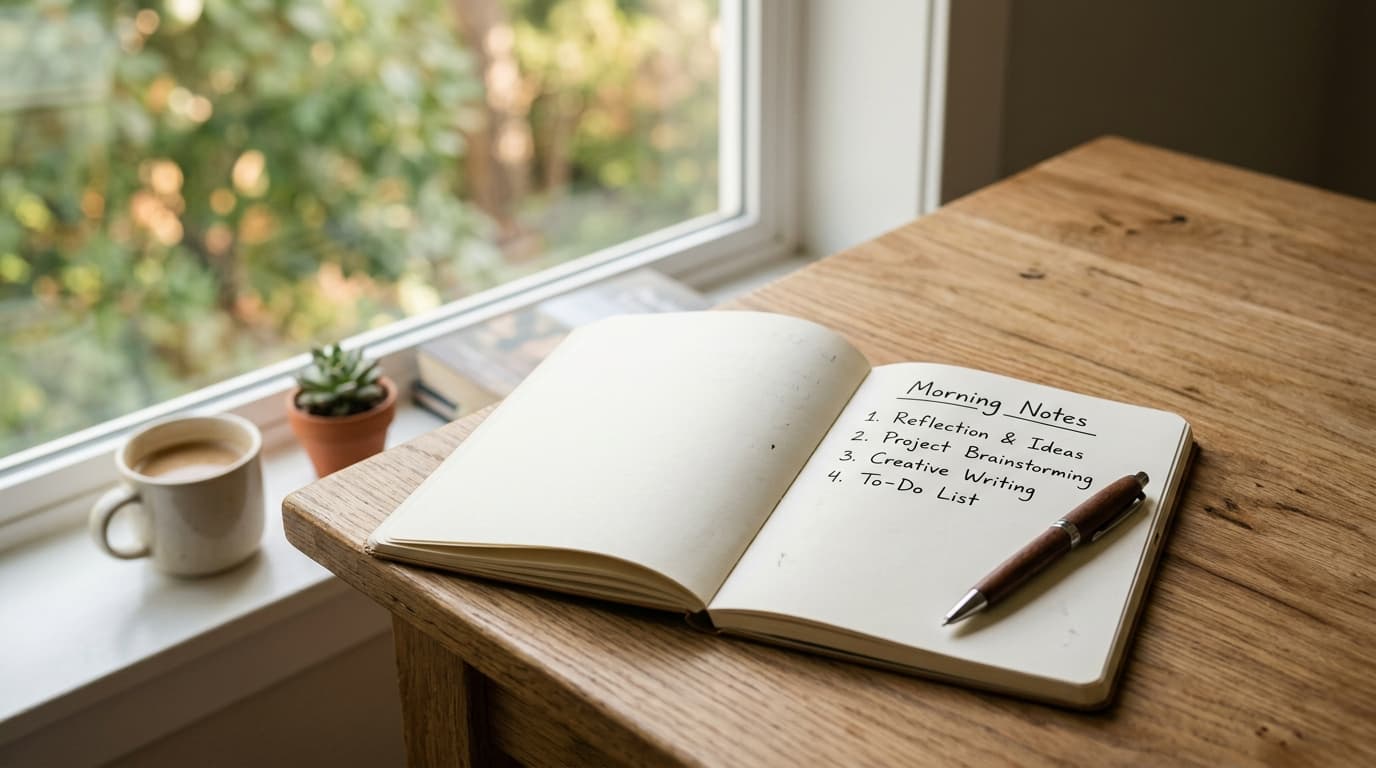 Morning Notes
1. Reflection & Ideas
2. Project Brainstorming
3. Creative Writing
4. To-Do List